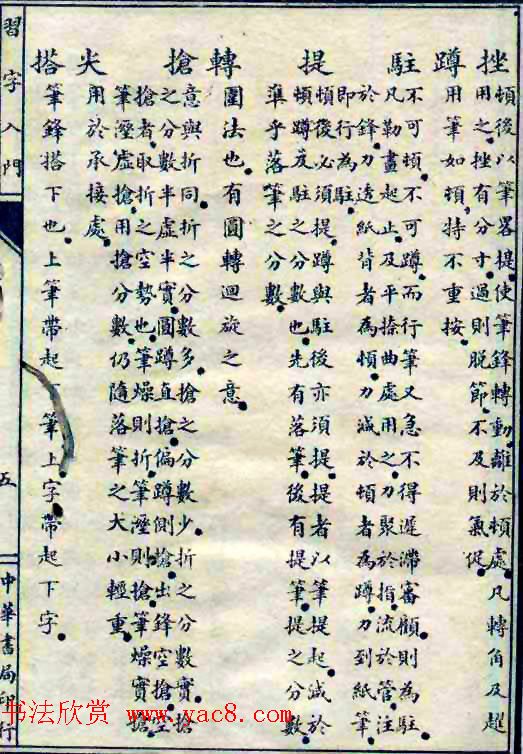 挫 頓後以筆畧提使筆鋒轉動離於頓處凡轉角及趯
用之挫有分寸過則脱節不及則氣促
蹲 用筆如頓持不重按
駐 不可頓不可蹲而行筆又急不得遲滯審顧則為駐
凡勒畫起止及平捺曲處用之力聚於指流於管注
於鋒力透紙背者為頓力減於頓者為蹲力到紙筆
即行為駐
提 頓後必須提蹲與駐後亦須提提者以筆提起減於
頓蹲及駐之分數也先有落筆後有提筆提之分數
準乎落筆之分數
轉 圍法也有圓轉迴旋之意
搶 意與折同折之分數多搶之分數少折之分數實搶
之分數半虛半實圓蹲直搶偏蹲側搶出鋒空搶空
搶者取折之空勢也筆燥則折筆溼則搶筆燥實搶
筆溼虛搶用搶分數仍隨落筆之大小輕重
尖 用於承接處
搭 筆鋒搭下也上筆帶起下筆上字帶起下字
習字入門
五
中華書局印行
书法欣赏 www.yac8.com